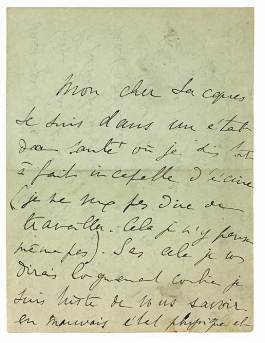 Mon cher Jacques
Je suis dans un état
de santé où je suis tout
à fait incapable d'écrire
(je ne veux pas dire de
travailler. Cela je n'y pense
même pas). Sans cela je vous
dirais longuement combien je
suis triste de vous savoir
en mauvais état physique et